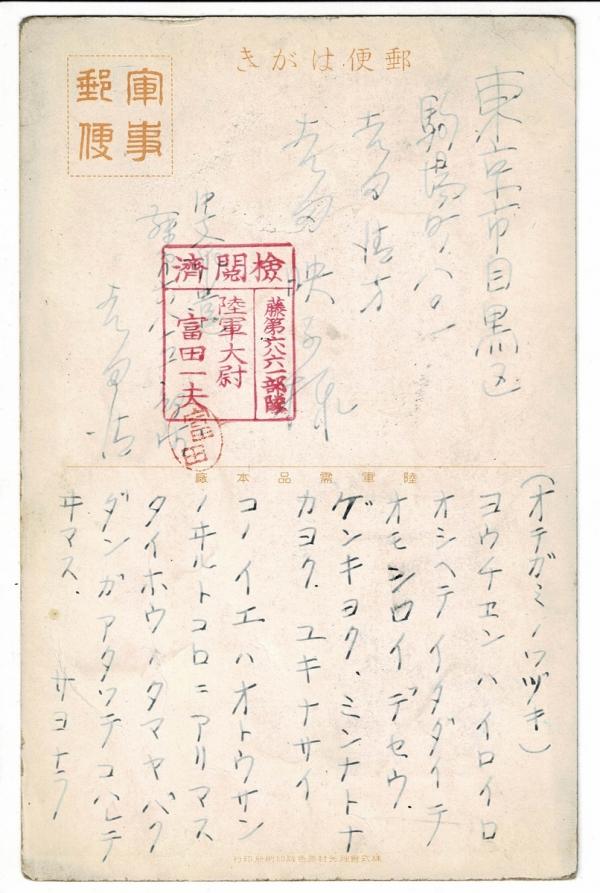 郵便はがき
軍事郵便
東京市目黒区
駒場町八〇一
吉田清方
吉田映子様
檢閲濟
藤第六八六一部隊
陸軍大尉
富田一夫
富田
吉田清
陸軍需品本廠
(オテガミノツヅキ)
ヨウチヱンハイロイロ
オシヘテイタダイテ
オモシロイデセウ
ゲンキヨク、ミンナトナ
カヨク ユキナサイ
コノイエハオトウサン
ノヰルトコロニアリマス
タイホウノタマヤバク
ダンガアタツテコハレテ
ヰマス. サヨナラ